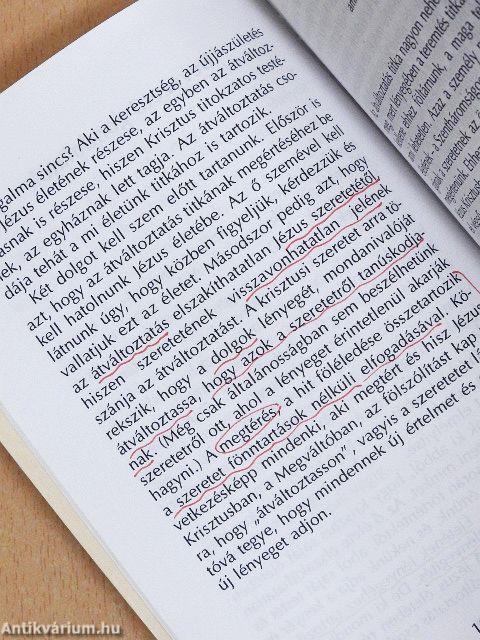 galma sincs? Aki a keresztség, az újjászületés
Jézus életének részese, az egyben az átváltoz-
ásnak is részese, hiszen Krisztus titokzatos testé-
nek, az egyháznak lett tagja. Az átváltoztatás cso-
dája tehát a mi életünk titkához is tartozik.
Két dolgot kell szem előtt tartanunk. Először is
azt, hogy az átváltoztatás titkának megértéséhez be
kell hatolnunk Jézus életébe. Az ő szemével kell
látnunk úgy, hogy közben figyeljük, kérdezzük és
vallatjuk ezt az életet. Másodszor pedig azt, hogy
az átváltoztatás elszakíthatatlan Jézus szeretetétől,
hiszen szeretetének visszavonhatatlan jelének
szánja az átváltoztatást. A krisztusi szeretet arra tö-
rekszik, hogy a dolgok lényegét, mondanivalóját
átváltoztassa, hogy azok a szeretetről tanúskodja-
nak. (Még csak általánosságban sem beszélhetünk
szeretetről ott, ahol a lényeget érintetlenül akarják
hagyni.) A megtérés, a hit föléledése összetartozik
a szeretet fönntartások nélküli elfogadásával. Kö-
vetkezésképp mindenki, aki megtért és hisz Jézus
Krisztusban, a Megváltóban, az fölszólítást kap
ra, hogy „átváltoztasson", vagyis a szeretetet lá
tóvá tegye, hogy mindennek új értelmet és
új lényeget adjon.
Antikvárium.hu